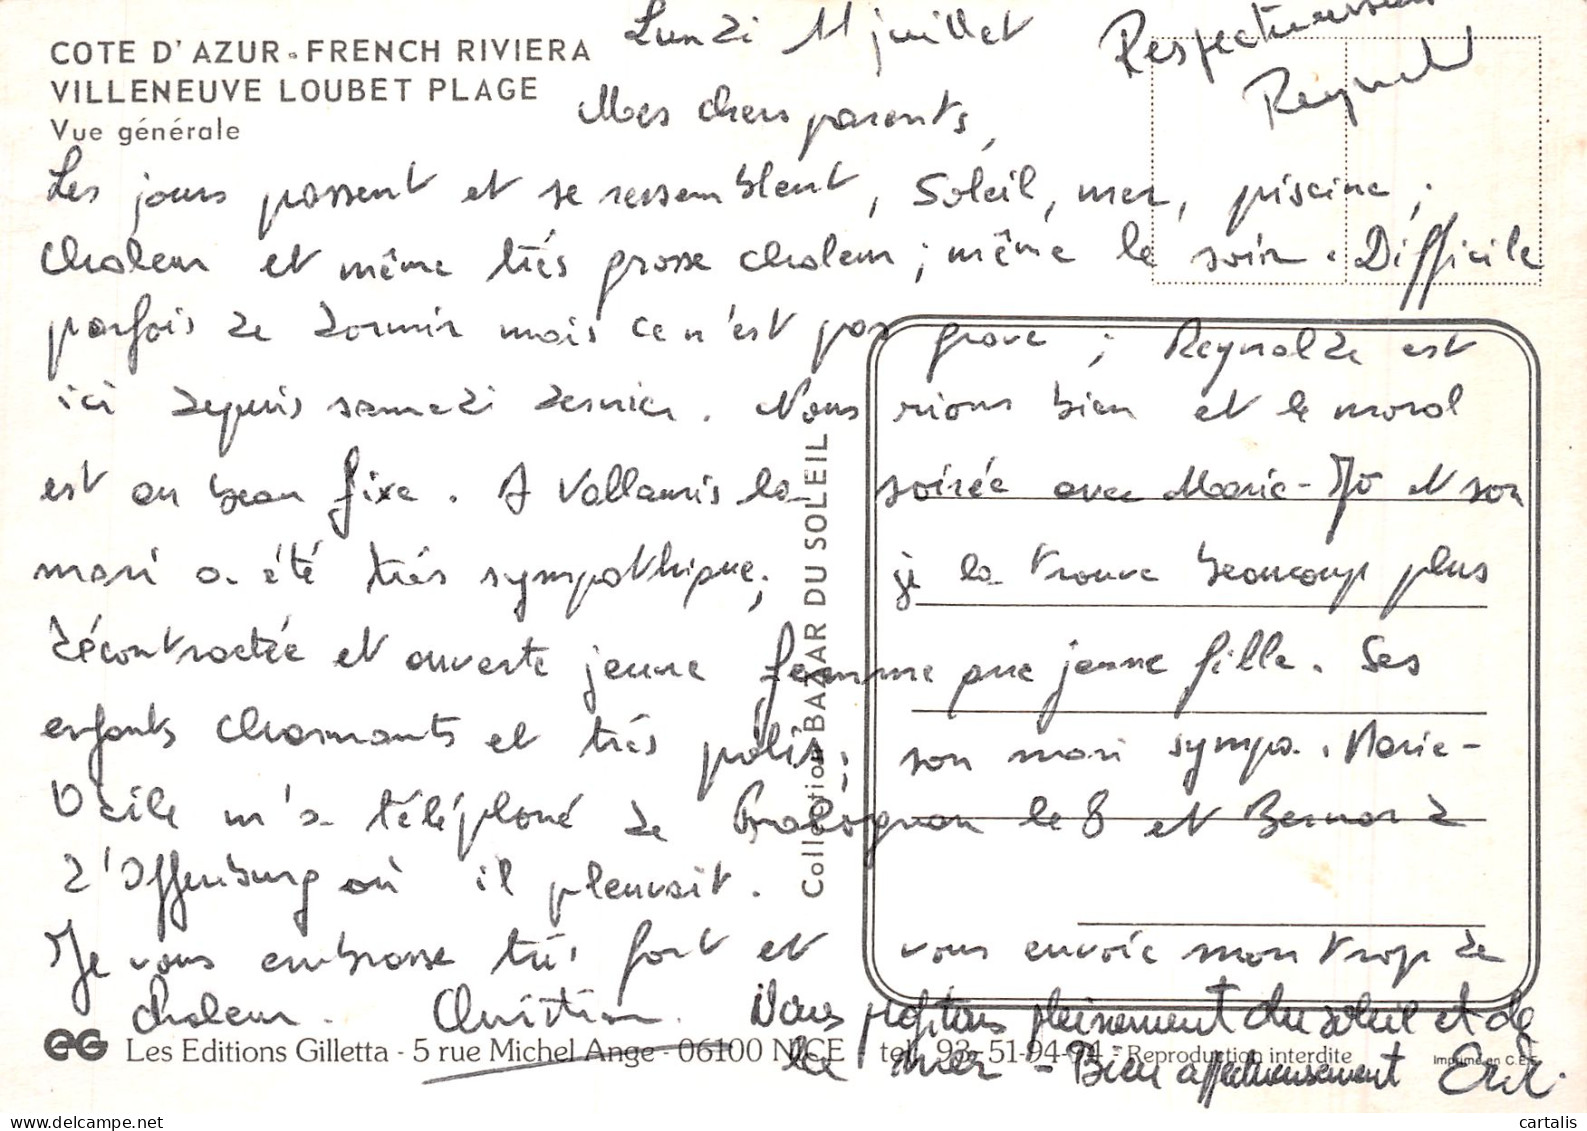 Lundi 11 juillet
Respectueusement
COTE D'AZUR - FRENCH RIVIERA
VILLENEUVE LOUBET PLAGE
Vue générale
Mes chers parents,
Les jours passent et se ressemblent, soleil, mer, piscine,
chaleur et même très grosse chaleur ; même le soir. Difficile
parfois de dormir mais ce n'est pas grave ; Reynalde est
ici depuis samedi dernier. Nous rions bien et le moral
est au beau fixe. A Vallauris la soirée avec Marie-Jo et son
mari a été très sympathique, je la trouve beaucoup plus
décontractée et ouverte jeune femme que jeune fille. Ses
enfants charmants et très polis, son mari sympa. Marie-
Odile m'a téléphoné de Pralognan le 8 et Bernard
d'Offenburg où il pleuvait.
Je vous embrasse très fort et vous envoie mon trop de
chaleur. Christian. Nous profitons pleinement du soleil et de
la mer - Bien affectueusement Eric.
Collection BAZAR DU SOLEIL
EG Les Editions Gilletta - 5 rue Michel Ange - 06100 NICE tel. 93-51-94-94 - Reproduction interdite
Imprimé en C.E.E.
cartalis